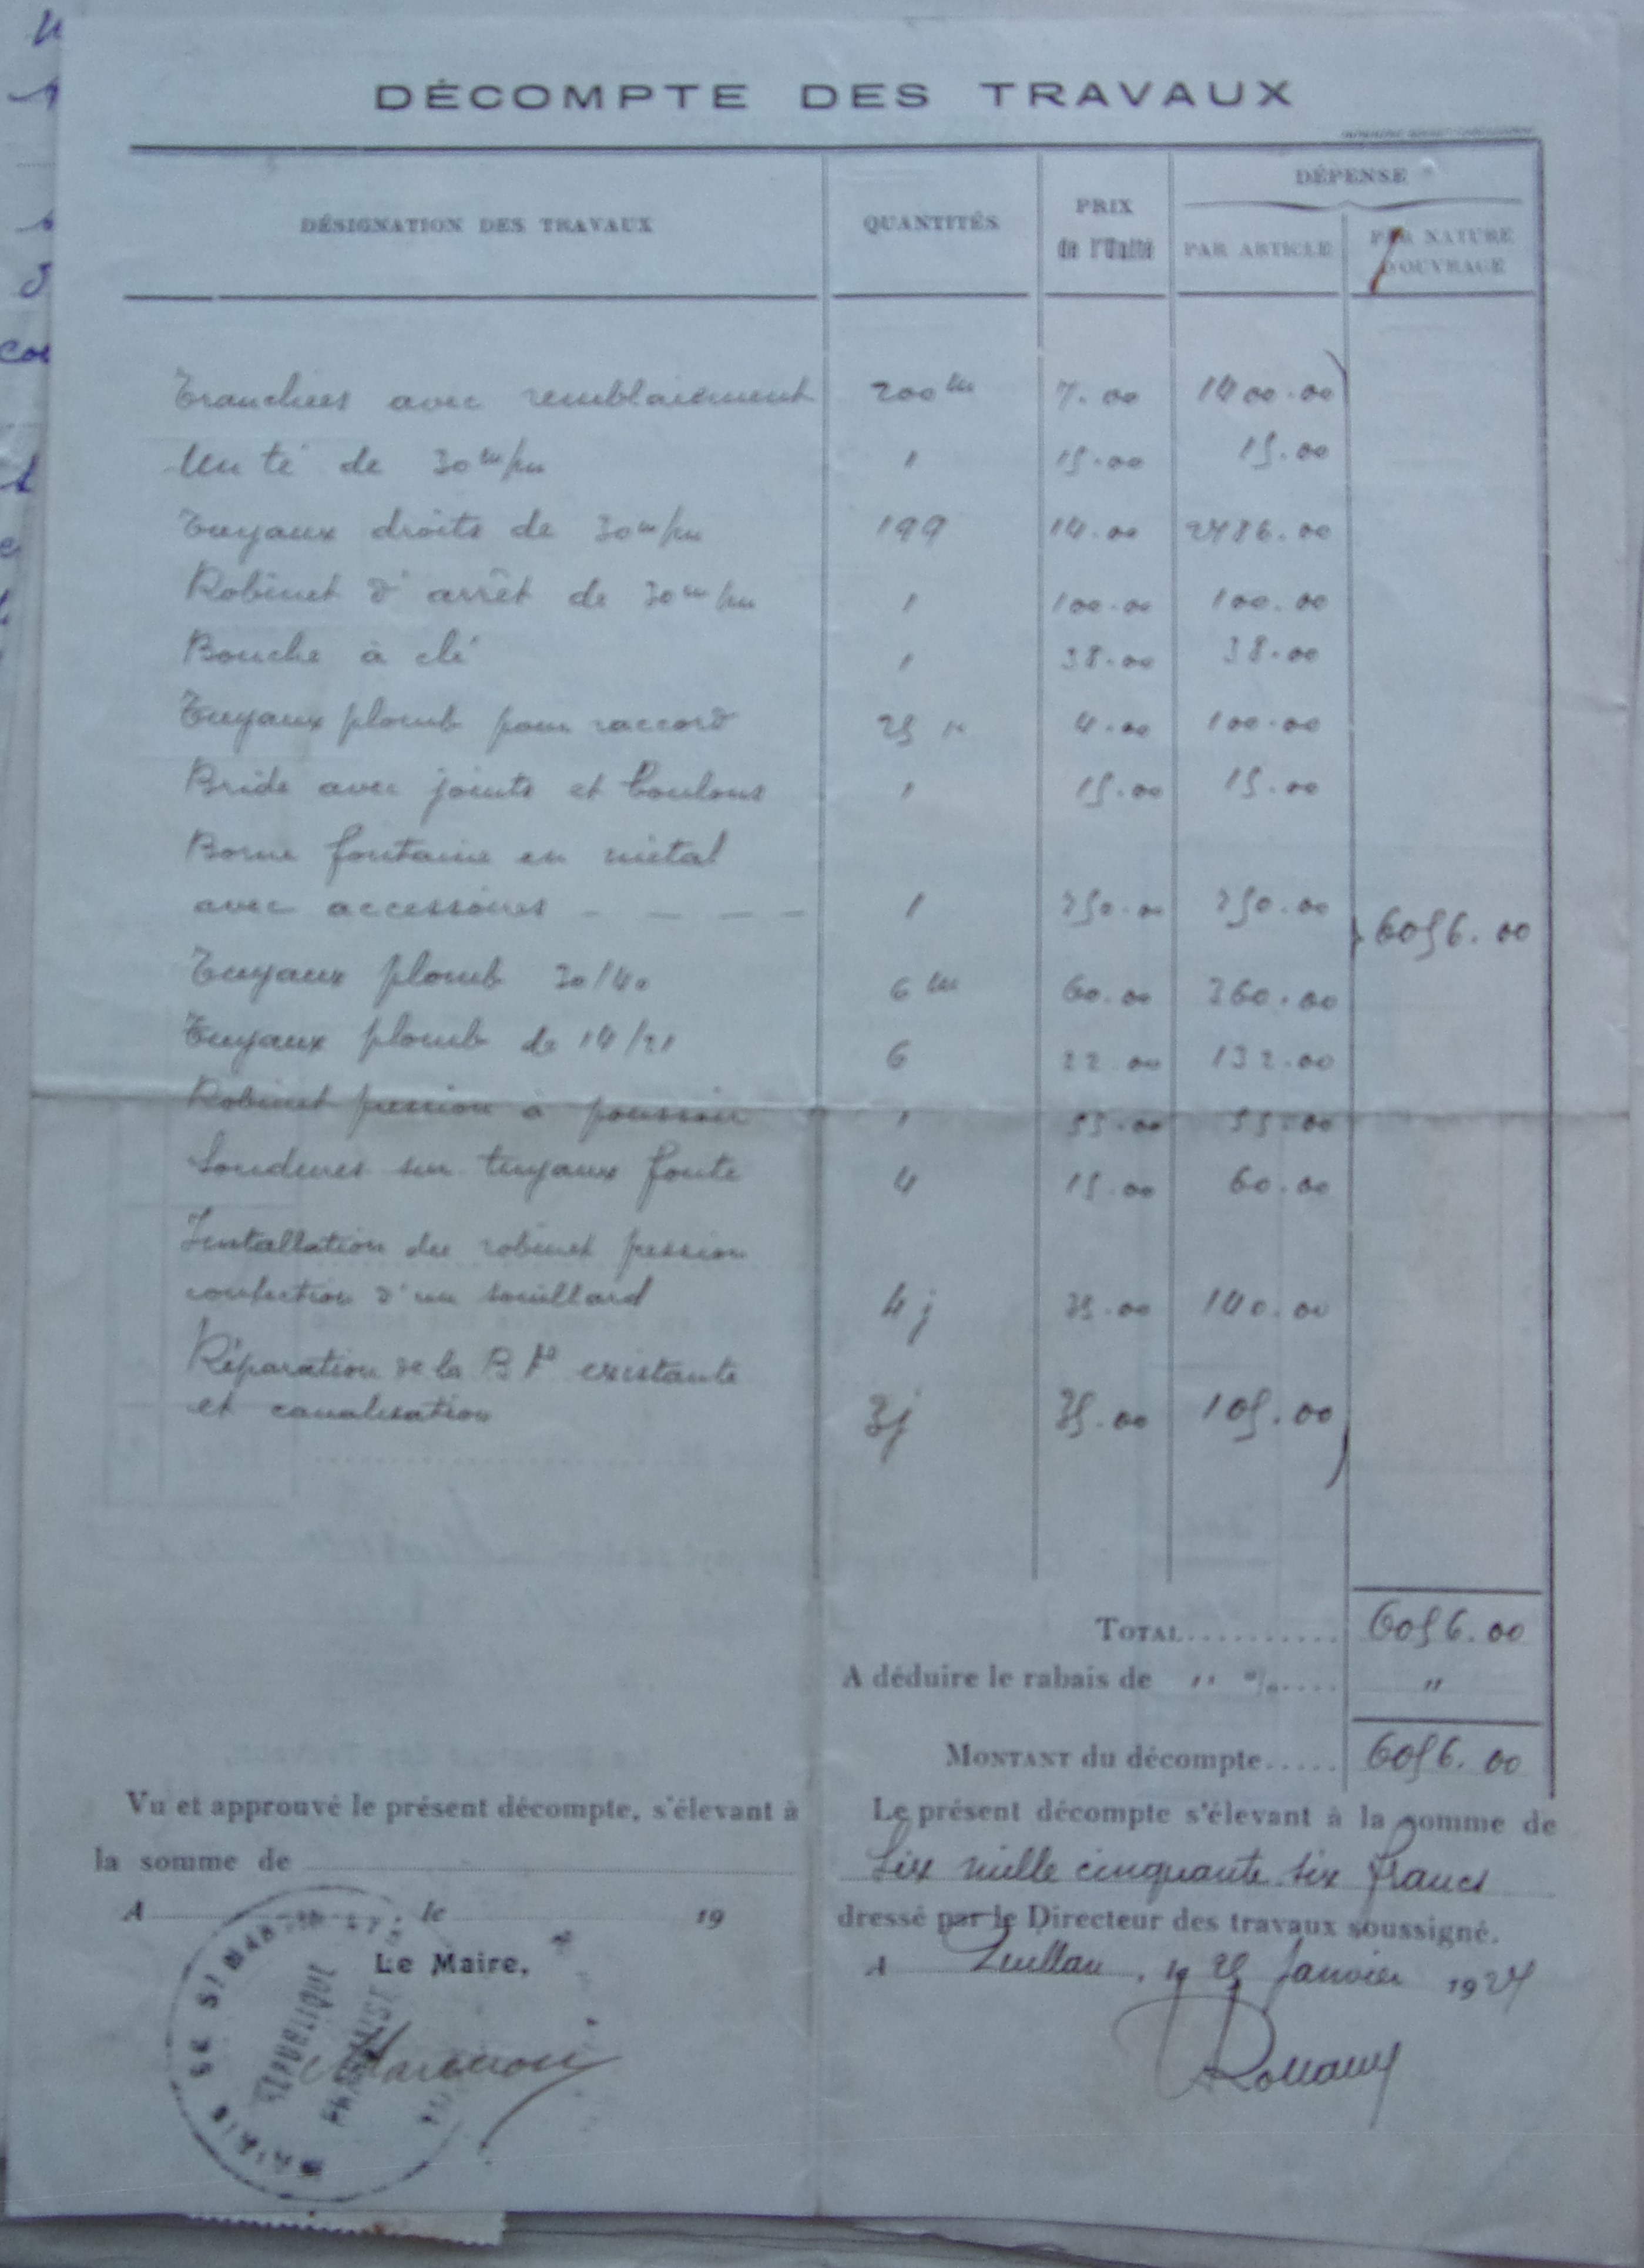 DÉCOMPTE DES TRAVAUX
DÉSIGNATION DES TRAVAUX QUANTITÉS PRIX de l'Unité DÉPENSE
PAR ARTICLE PAR NATURE D'OUVRAGE
Tranchées avec remblaiement 200 m 7.00 1400.00
Un té de 30 m/m 1 15.00 15.00
Tuyaux droits de 30 m/m 199 14.00 2786.00
Robinet d'arrêt de 30 m/m 1 100.00 100.00
Bouche à clé 1 38.00 38.00
Tuyaux plomb pour raccord 25 4.00 100.00
Bride avec joints et boulons 1 15.00 15.00
Borne fontaine en métal
avec accessoires - - - - 1 750.00 750.00 6056.00
Tuyaux plomb 30/40 6 m 60.00 360.00
Tuyaux plomb de 14/21 6 22.00 132.00
Robinet pression à poussoir 1 55.00 55.00
Soudures sur tuyaux fonte 4 15.00 60.00
Installation du robinet pression
confection d'un souillard 4 j 35.00 140.00
Réparation de la B Fne existante
et canalisation 3j 35.00 105.00
TOTAL........... 6056.00
A déduire le rabais de " %.... "
MONTANT du décompte..... 6056.00
Vu et approuvé le présent décompte, s'élevant à
la somme de
A le 19
Le Maire,
MAIRIE DE St MARTIN
RÉPUBLIQUE FRANÇAISE
Le présent décompte s'élevant à la somme de
Six mille cinquante six francs
dressé par le Directeur des travaux soussigné.
A Quillan, le 25 Janvier 1927